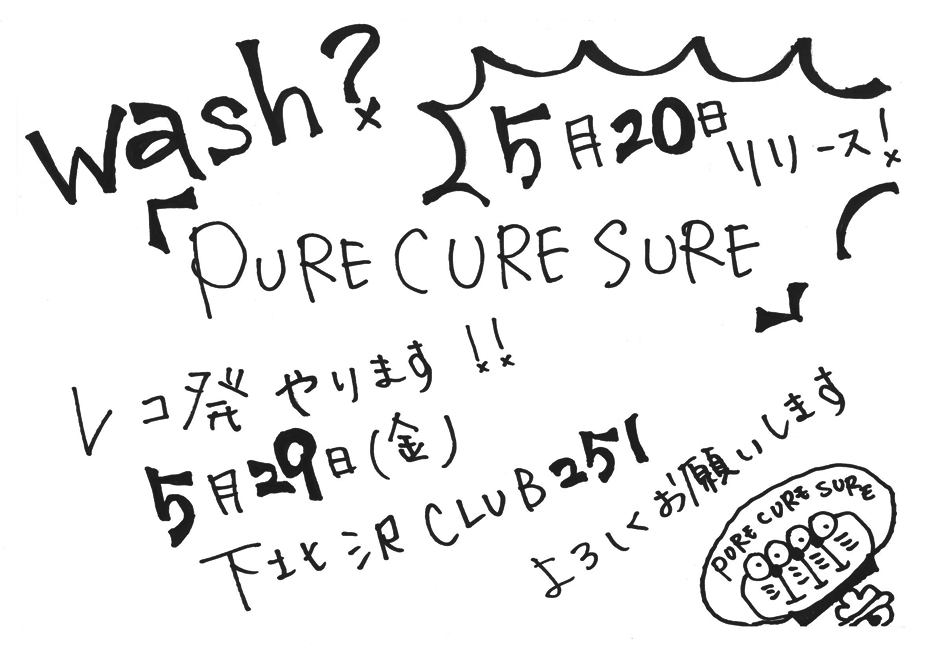 wash?
5月20日リリース!
『PURE CURE SURE』
レコ発やります!!
5月29日(金)
下北沢CLUB251
よろしくお願いします
PURE CURE SURE